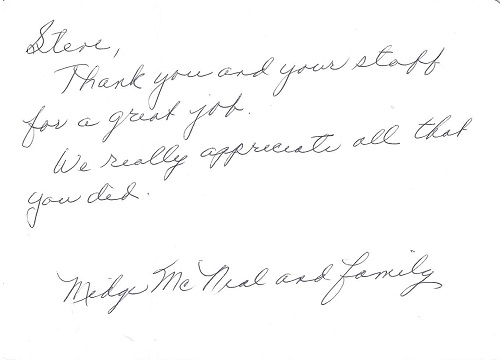 Steve,
Thank you and your staff
for a great job.
We really appreciate all that
you did.
Midge McNeal and family